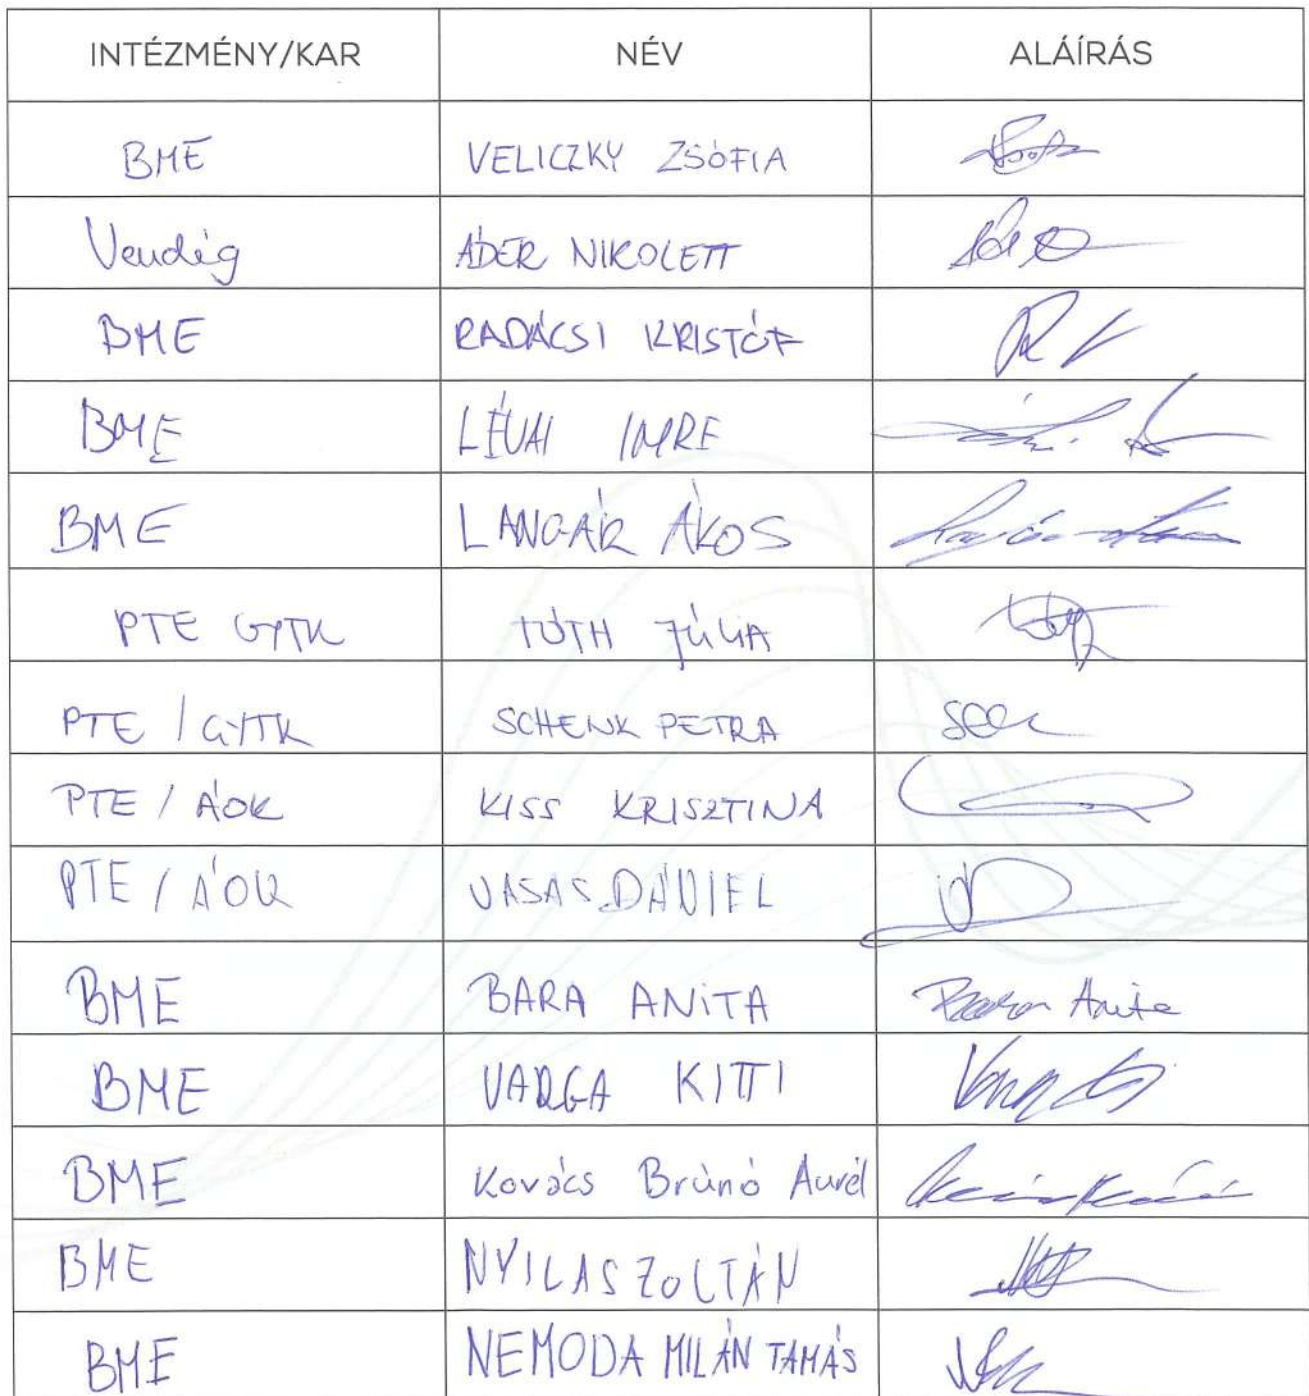 INTÉZMÉNY/KAR NÉV ALÁÍRÁS
BME VELICZKY ZSÓFIA
Vendég ÁDER NIKOLETT
BME RADÁCSI KRISTÓF
BME LÉVAI IMRE
BME LANGÁR ÁKOS
PTE GYTK TÓTH JÚLIA
PTE / GYTK SCHENK PETRA
PTE / ÁOK KISS KRISZTINA
PTE / ÁOK VASAS DÁNIEL
BME BARA ANITA Bara Anita
BME VARGA KITTI
BME Kovács Brúnó Aurél
BME NYILAS ZOLTÁN
BME NEMODA MILÁN TAMÁS